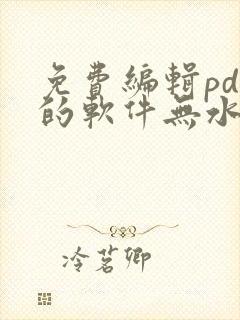 免費編輯pd
的軟件無水
冷茗卿